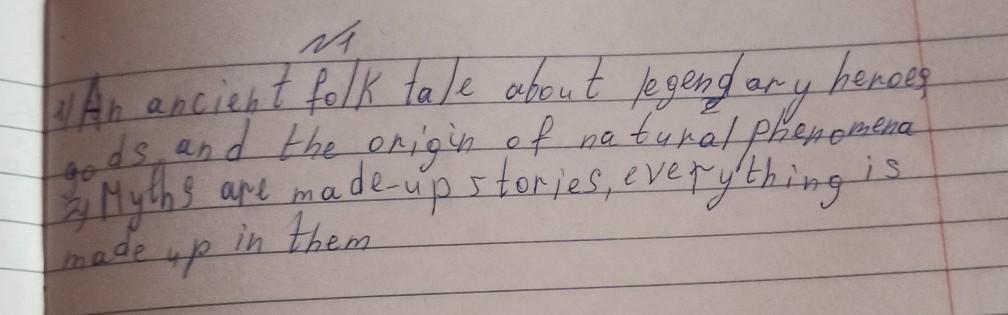 №1
1) An ancient folk tale about legendary heroes
gods, and the origin of natural phenomena
2) Myths are made-up stories, everything is
made up in them